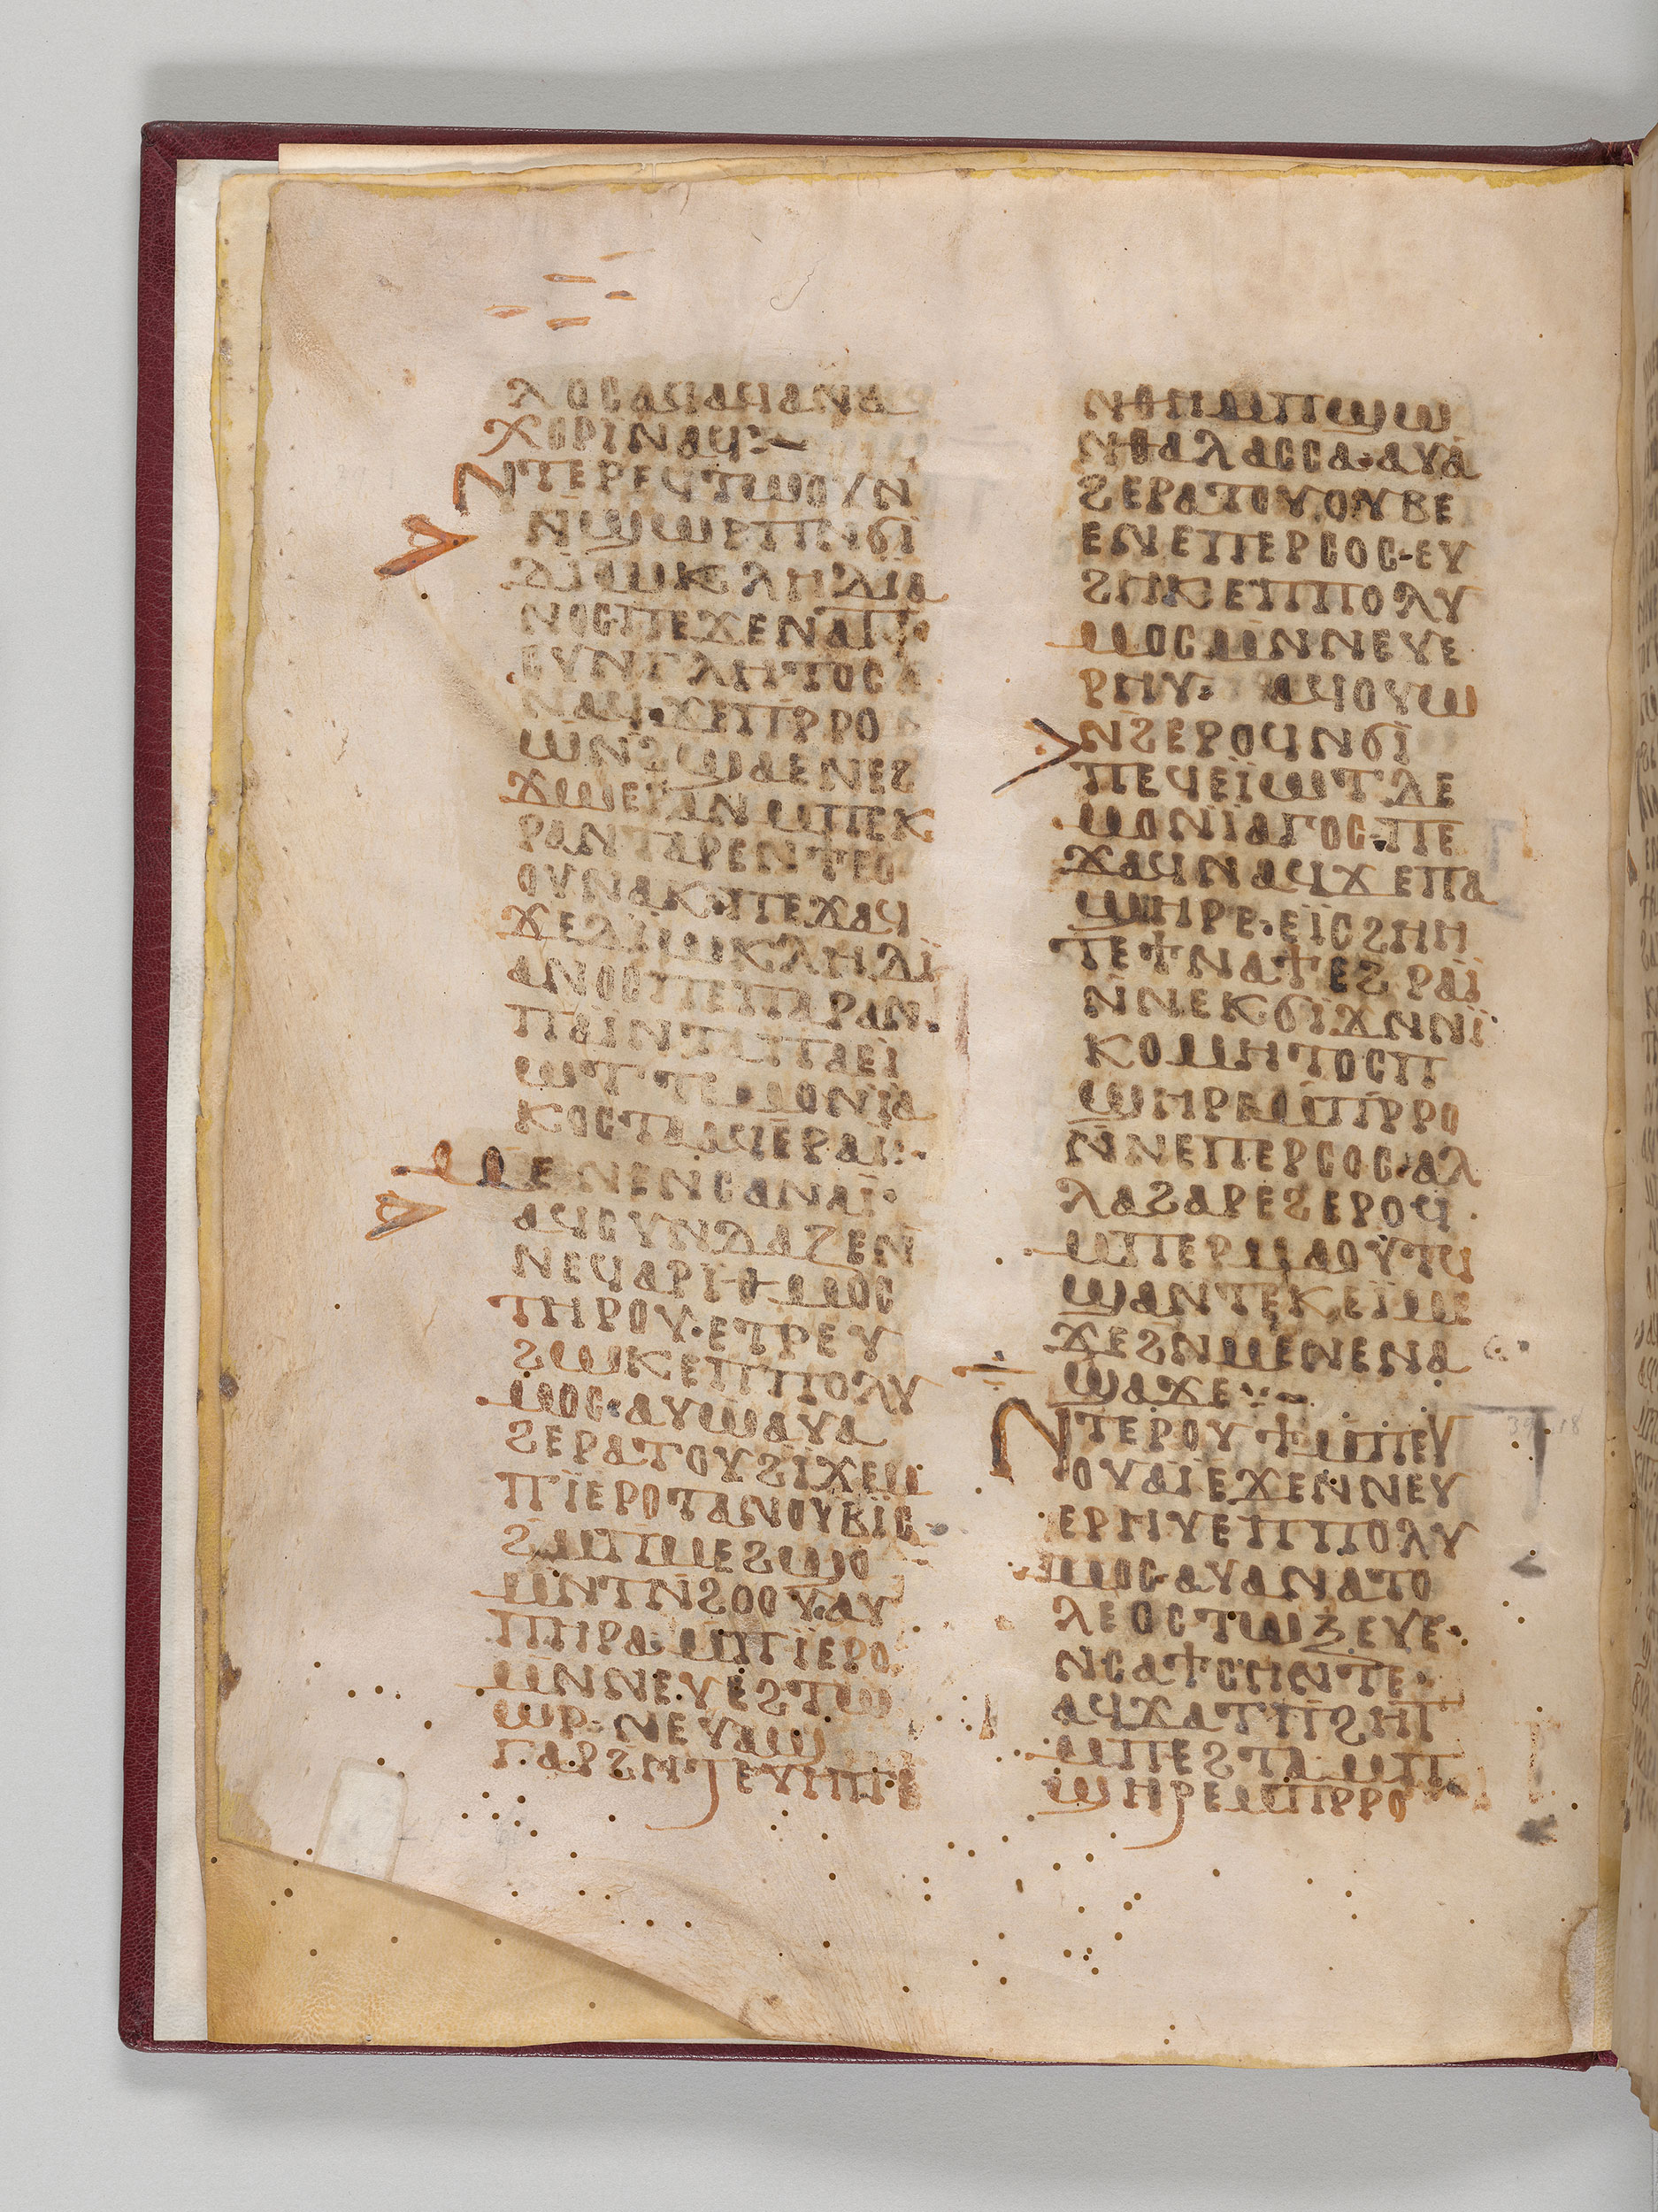 ⲗⲟⲥⲁϥⲁϥⲁⲛⲁ
ⲭⲱⲣⲓⲛⲁϥ:
ⲛⲧⲉⲣⲉϥⲧⲱⲟⲩⲛ
ⲛϣⲱⲣⲉⲡⲛϭⲓ
ⲇⲓⲱⲕⲗⲏⲇⲓⲁ
ⲛⲟⲥ·ⲡⲉϫⲉⲛⲁⲡ
ⲥⲩⲛⲅⲗⲏⲧⲟⲥ
ⲛⲁϥ·ϫⲉⲡⲣⲣⲟ
ⲱⲛϩϣⲁⲉⲛⲉϩ
ϫⲱⲉⲣⲟⲛⲙⲡⲉⲕ
ⲣⲁⲛⲧⲁⲣⲉⲛϯⲉⲟ
ⲟⲩⲛⲁⲕ·ⲡⲉϫⲁϥ
ϫⲉⲇⲓⲱⲕⲗⲏⲇⲓ̈
ⲁⲛⲟⲥⲡⲉⲡⲁⲣⲁⲛ·
ⲡⲁⲓ̈ⲛⲧⲁⲡⲁⲉⲓ
ⲱⲧⲧⲙⲟⲛⲓ̈ⲁ
ⲕⲟⲥⲧⲁⲁϥⲉⲣⲁⲓ:
ⲙⲉⲛⲉⲛⲥⲁⲛⲁⲓ̈·
ⲁϥⲥⲩⲛⲇⲁⲍⲉⲛ
ⲛⲉϥⲁⲣⲓ̈ⲑⲙⲟⲥ
ⲧⲏⲣⲟⲩ·ⲉⲧⲣⲉⲩ
ϩⲱⲕⲉⲡⲡⲟⲗⲩ
ⲙⲟⲥ·ⲁⲩⲱⲁⲩⲁ
ϩⲉⲣⲁⲧⲟⲩϩⲓϫⲉⲙ
ⲡⲓ̈ⲉⲣⲟⲧⲁⲛⲟⲩⲃⲓ̈ⲥ
ϩⲙⲡⲙⲉϩϣⲟ
ⲙⲛⲧⲛϩⲟⲟⲩ·ⲁⲩ
ⲡⲏⲣⲁ·ⲙⲡⲓ̈ⲉⲣⲟ
ⲙⲛⲛⲉⲩⲉϩⲧⲱ
ⲱⲣ·ⲛⲉⲩⲁϣ
ⲅⲁⲣϩⲛⲧⲉⲩⲏⲡⲉ
ⲛⲑⲏⲙⲡϣⲱ
ⲛⲑⲁⲗⲁⲥⲥⲁ·ⲁⲩⲁ
ϩⲉⲣⲁⲧⲟⲩⲟⲩⲃⲉ
ⲉⲛⲉⲡⲉⲣⲥⲟⲥ·ⲉⲩ
ϩⲏⲕⲉⲡⲡⲟⲗⲩ
ⲙⲟⲥⲙⲛⲛⲉⲩⲉ
ⲣⲏⲩ· ⲁϥⲟⲩⲱ
ⲛϩⲉⲣⲟϥⲛϭⲓ
ⲡⲉϥⲉⲓ̈ⲱⲧⲇⲉ
ⲙⲟⲛⲓ̈ⲁⲅⲟⲥ·ⲡⲉ
ϫⲁϥⲛⲁϥϫⲉⲡⲁ
ϣⲏⲣⲉ·ⲉⲓ̈ⲥϩⲏⲏ
ⲧⲉϯⲛⲁϯⲉϩⲣⲁⲓ̈
ⲛⲛⲉⲕϭⲓϫⲛⲛⲓ̈
ⲕⲟⲙⲏⲧⲟⲥⲡ
ϣⲏⲣⲉⲙⲡⲣⲣⲟ
ⲛⲛⲉⲡⲉⲣⲥⲟⲥ·ⲁⲗ
ⲗⲁϩⲁⲣⲉϩⲉⲣⲟϥ·
ⲙⲡⲉⲣⲙⲁⲟⲩⲧϥ
ϣⲁⲛⲧⲉⲕⲉⲓ̈ⲙⲉ
ϫⲉϩⲛⲙⲉⲛⲉⲛⲁ
ϣⲁϫⲉ:
ⲛⲧⲉⲣⲟⲩϯⲙⲡⲉⲩ
ⲟⲩⲁⲓ̈ⲉϫⲉⲛⲛⲉⲩ
ⲉⲣⲏⲩⲉⲡⲡⲟⲗⲩ
ⲙⲟⲥ·ⲁⲩⲁⲛⲁⲧⲟ
ⲗⲉⲟⲥⲧⲱϭⲉⲩⲉ·
ⲛⲥⲁϯⲥⲏⲛⲧⲉ·
ⲁϥϫⲁⲧⲡϩⲏⲧ
ⲙⲡⲉϩⲧⲁⲙⲡ
ϣⲏⲣⲉⲙⲡⲣⲣⲟ